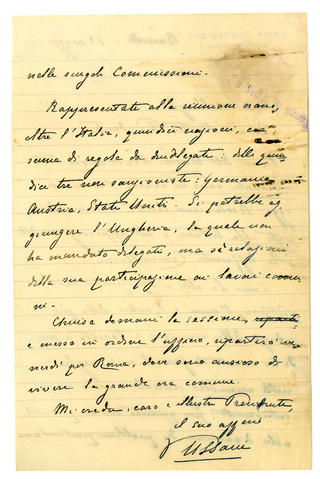 nelle singole Commissioni.
Rappresentate alla riunione erano,
oltre l'Italia, quindici nazioni, cia-
scuna di regola da due delegati: delle quin-
dici tre non sanzioniste: Germania
Austria, Stati Uniti. Si potrebbe ag-
giungere l'Ungheria, la quale non
ha mandato delegati, ma sì relazioni
della sua partecipazione ai lavori comu-
ni.
Chiusa domani la sessione,
e messo in ordine l'ufficio, ripartirò ve-
nerdì per Roma, dove sono ansioso di
vivere la grande ora comune.
Mi creda, caro e illustre Presidente,
il suo aff.mo
Ussani